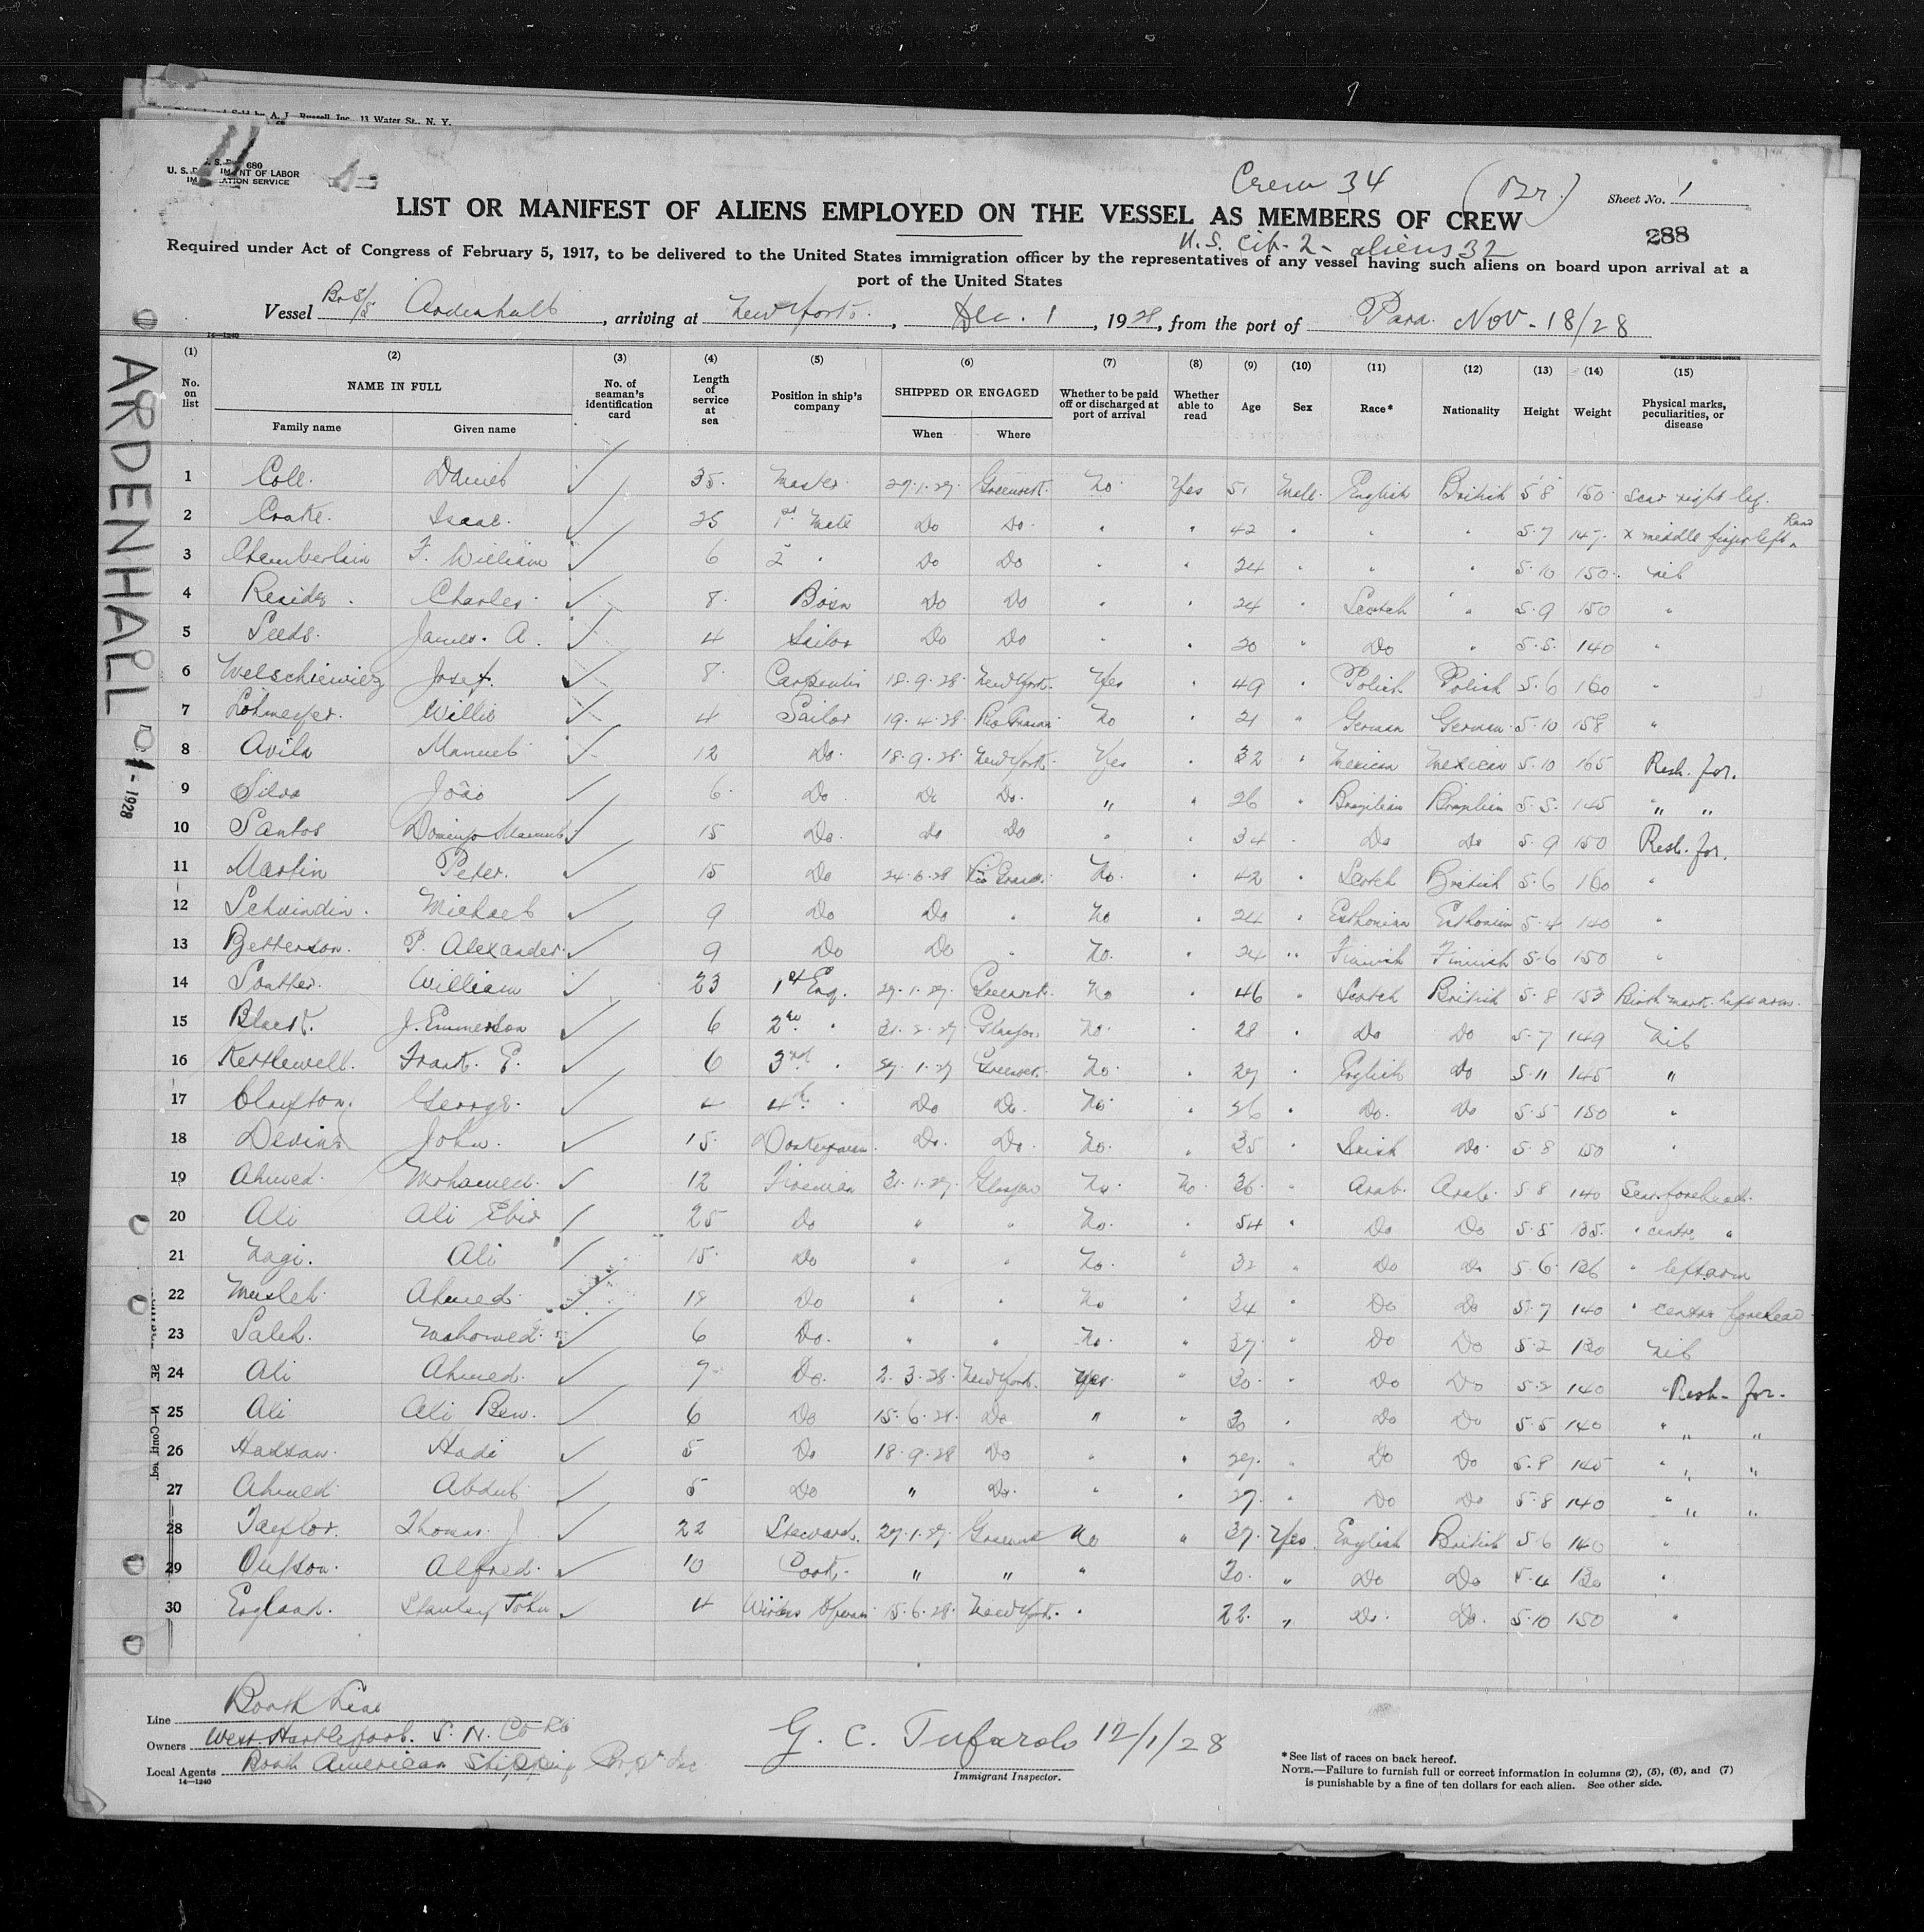 A. J. Russell Inc. 13 Water St., N. Y.
680
U. S. DEPARTMENT OF LABOR
IMMIGRATION SERVICE
Crew 34 (Br.) Sheet No. 1
LIST OR MANIFEST OF ALIENS EMPLOYED ON THE VESSEL AS MEMBERS OF CREW
288
U.S. Cit- 2 - aliens 32
Required under Act of Congress of February 5, 1917, to be delivered to the United States immigration officer by the representatives of any vessel having such aliens on board upon arrival at a
port of the United States
Vessel Br S/S Ardenhall, arriving at New York, Dec. 1, 1928, from the port of Para. Nov-18/28
14-1240
ARDENHALL
1-1928
(1) (2) (3) (4) (5) (6) (7) (8) (9) (10) (11) (12) (13) (14) (15)
No. on list NAME IN FULL No. of seaman's identification card Length of service at sea Position in ship's company SHIPPED OR ENGAGED Whether to be paid off or discharged at port of arrival Whether able to read Age Sex Race* Nationality Height Weight Physical marks, peculiarities, or disease
Family name Given name When Where
1 Coll. Daniel 35. Master 27.1.27 Greenock. No. Yes 51 Male. English British 5'8" 150 Scar right leg.
2 Isaac. 25 1st Mate Do Do " " 42 " " " 5.7 147. x middle finger left Hand
3 Chamberlain F. William 6 2 " Do Do " " 24 " " " 5.10 150. nil
4 Charles 8. Bosn Do Do " " 24 " Scotch " 5.9 150 "
5 Leeds. James. A. 4 Sailor Do Do " " 20 " Do " 5.5. 140 "
6 Welschiewiez Josef. 8. Carpenter 18.9.28 New York. Yes " 49 " Polish Polish 5.6 160 "
7 Lohmeyer. Willie 4 Sailor 19.4.28 No " 21 " German German 5.10 158 "
8 Avila Manuel 12 Do. 18.9.28 New York. Yes " 32 " Mexican Mexican 5.10 165 Resh. for.
9 Silva João 6. Do. Do Do. " " 26 " Brazilian Brazilian 5.5. 145 " "
10 Santos Domingo Manuel 15 Do. Do Do " " 34 " Do Do 5.9 150 Resh. for.
11 Martin Peter. 15 Do 24.6.28 No. " 42 " Scotch British 5.6 160 "
12 Schvindin. Michael 9 Do Do " No " 24 " Esthonian Esthonian 5.4 140 "
13 Betterson. P. Alexander. 9 Do Do " No. " 24 " Finnish Finnish 5.6 150 "
14 Soutter. William 23 1st Eng. 27.1.27. Greenock. No " 46 " Scotch British 5.8 153 Birth mark. left arm.
15 J. Emmerson 6 2nd " 31.2.27 Glasgow No. " 28 " Do Do 5.7 149 Nil
16 Kettlewell. Frank. E. 6 3rd " 27.1.27 Greenock. No. " 27 " English Do 5.11 145 "
17 Clayton. George. 4 4th " Do Do. No. " 26 " Do. Do 5.5 150 "
18 Devine John. 15. Donkeyman. Do. Do. No. " 35 " Irish Do. 5.8 150 "
19 Ahmed. Mohamed. 12 Fireman 31.1.27. Glasgow No. No. 36 " Arab. Arab. 5.8 140 Scar forehead.
20 Ali Ali 25 Do " " No. " 54 " Do Do 5.5 135. " centre "
21 Nagi. Ali 15. Do " " No. " 32 " Do Do 5.6 136 " left arm
22 Musleh. Ahmed. 18 Do " " No " 34 " Do Do 5.7 140 " centre forehead
23 Saleh. Mohomed. 6 Do. " " No. " 37. " Do Do 5.2 130 Nil
24 Ali Ahmed. 7 Do. 2.3.28. New York. Yes " 30. " Do Do 5.2 140 Resh. for.
25 Ali Ali Ben. 6 Do 15.6.28. Do " " 30 " Do Do 5.5 140 " "
26 Hassan. Hadi 5 Do 18.9.28 Do " " 27. " Do Do 5.8 145 " "
27 Ahmed. Abdul 5 Do " Do. " " 27. " Do Do 5.8 140 " "
28 Taylor. Thomas. J 22 Steward. 27.1.27. Greenock No " 37. Yes English British 5.6 140 "
29 Alfred. 10 Cook. " " " 30. " Do Do 5.4 130 "
30 England. Stanley John 4 Wireless Operator 15.6.28. New York. " 22. " Do. Do. 5.10 150 "
Line Booth Line
Owners West Hartlepool. S. N. Co Ltd
Local Agents Booth American Shipping Corp. Inc
14-1240
G. C. Tufarolo 12/1/28
Immigrant Inspector.
*See list of races on back hereof.
NOTE.—Failure to furnish full or correct information in columns (2), (5), (6), and (7)
is punishable by a fine of ten dollars for each alien. See other side.